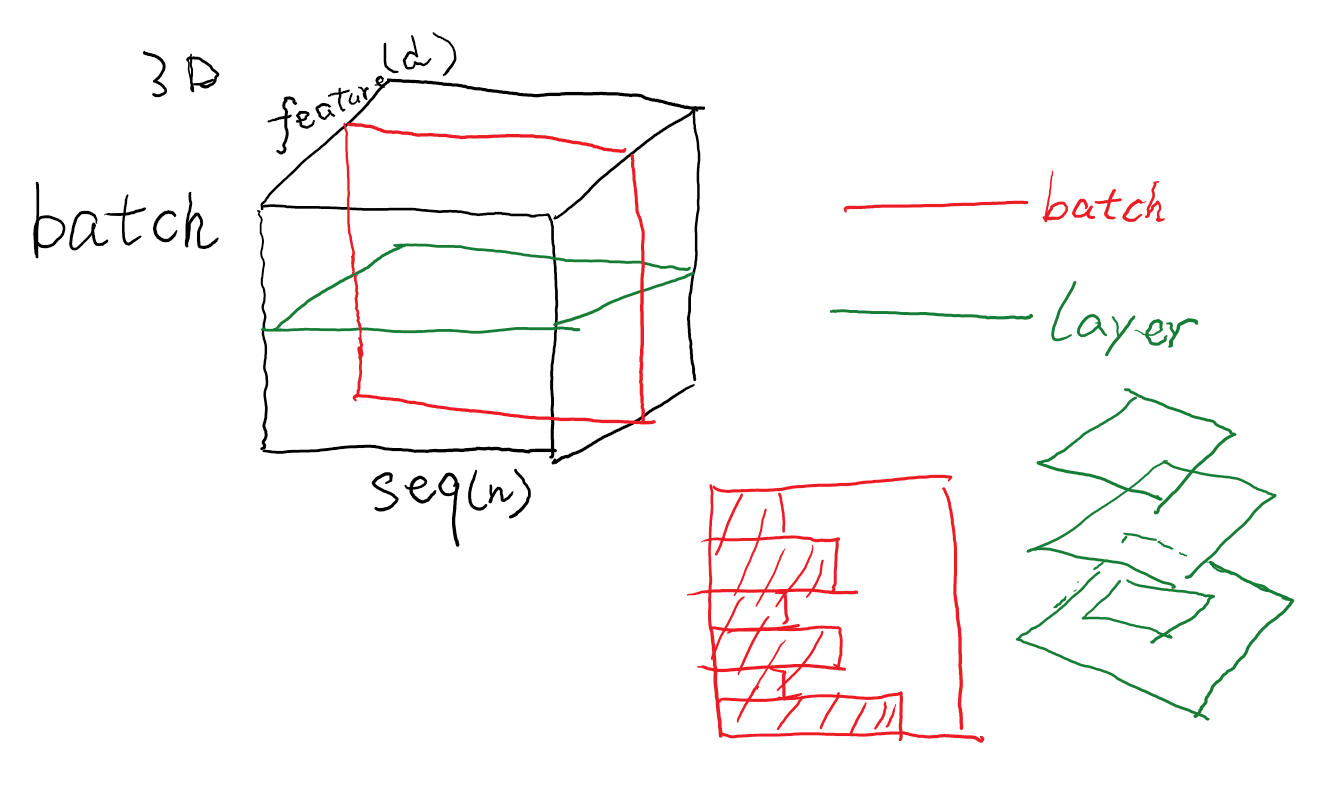 3D
(d)
feature
batch
seq(n)
batch
layer